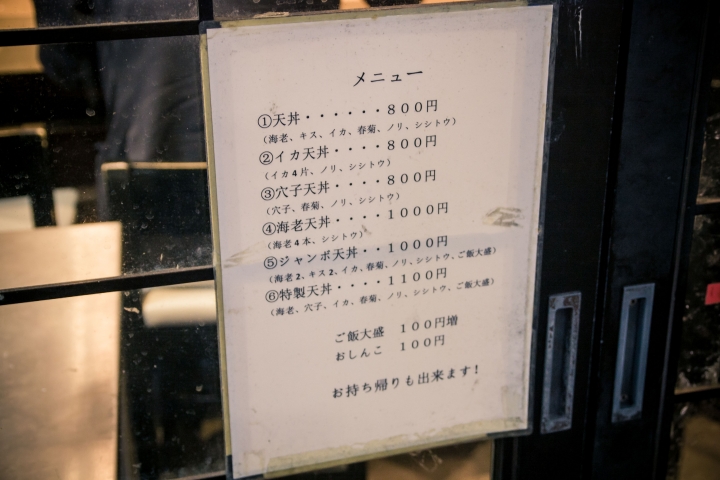 メニュー
①天丼・・・・・・８００円
（海老、キス、イカ、春菊、ノリ、シシトウ）
②イカ天丼・・・・８００円
（イカ４片、ノリ、シシトウ）
③穴子天丼・・・・８００円
（穴子、春菊、ノリ、シシトウ）
④海老天丼・・・・１０００円
（海老４本、シシトウ）
⑤ジャンボ天丼・・１０００円
（海老２、キス２、イカ、春菊、ノリ、シシトウ、ご飯大盛）
⑥特製天丼・・・・１１００円
（海老、穴子、イカ、春菊、ノリ、シシトウ、ご飯大盛）
ご飯大盛　１００円増
おしんこ　１００円
お持ち帰りも出来ます！